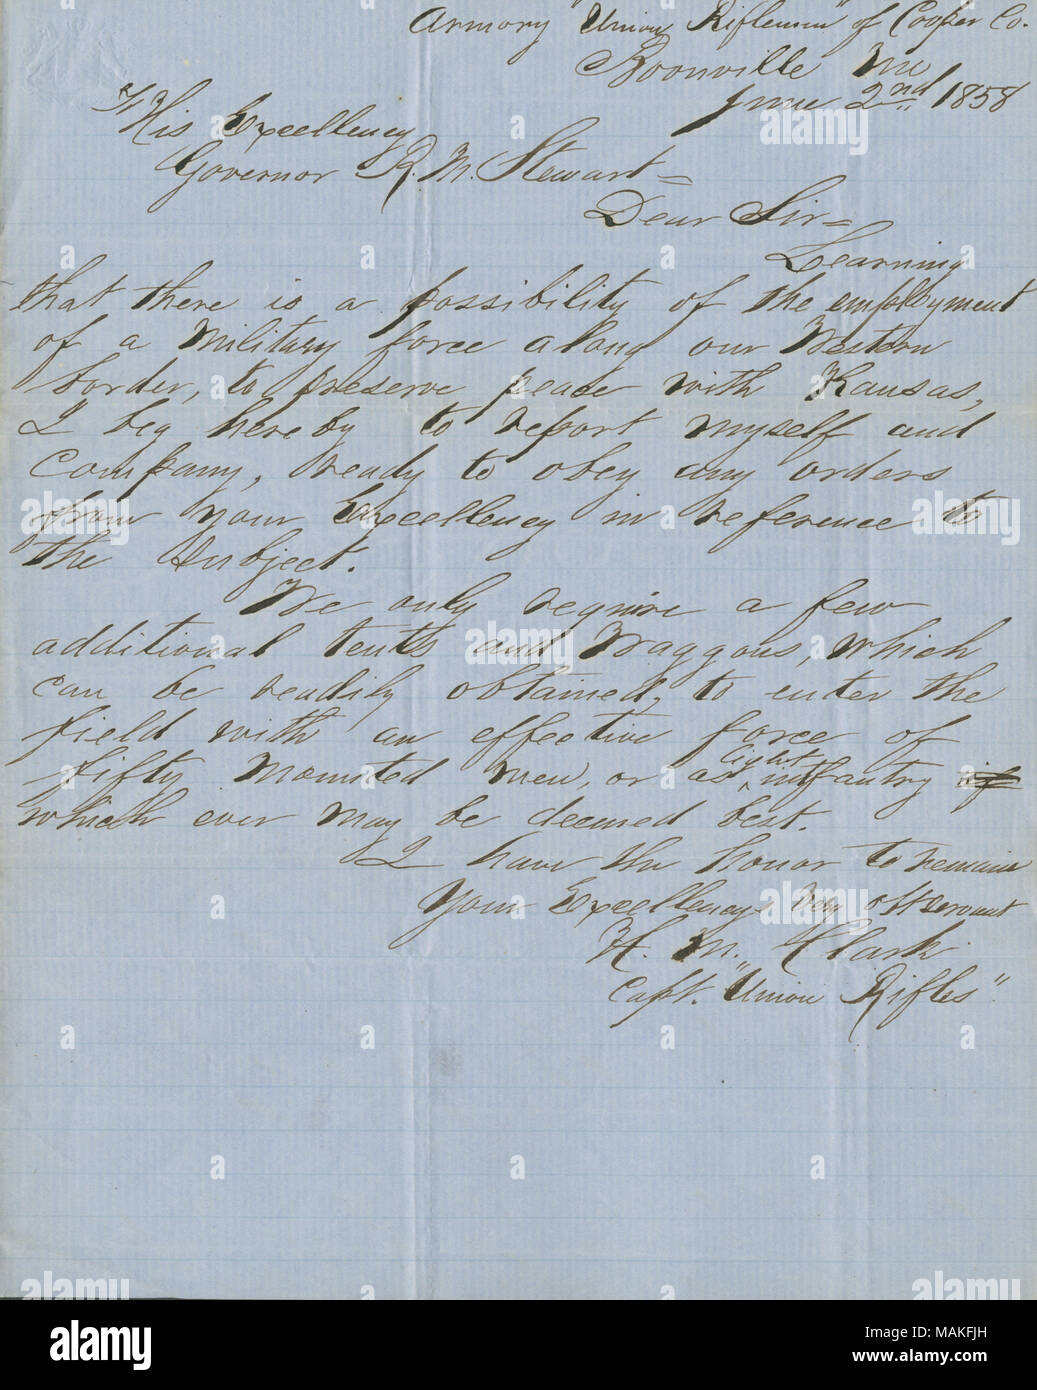 Armory "Union Riflemen" of Cooper Co.
Boonville Mo
June 2nd 1858
His Excellency
Governor R. M. Stewart =
Dear Sir =
Learning
that there is a possibility of the employment
of a Military force along our Western
border, to preserve peace with Kansas,
I beg hereby to report myself and
Company, ready to obey any orders
from your Excellency in reference to
the Subject.
We only require a few
additional tents and Waggons, which
can be readily obtained, to enter the
field with an effective force of
fifty Mounted men, or as light infantry if
which ever may be deemed best.
I have the honor to remain
Your Excellencys very obt servant
H. M. Clark
Capt. "Union Rifles".
alamy
Image ID: MAKFJH
www.alamy.com